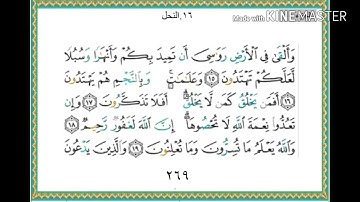 ١٦.النحل
Made with KINEMASTER
وَأَلْقَىٰ فِي الْأَرْضِ رَوَٰسِيَ أَن تَمِيدَ بِكُمْ وَأَنْهَٰرًا وَسُبُلًا
لَّعَلَّكُمْ تَهْتَدُونَ ١٥ وَعَلَٰمَٰتٍ ۚ وَبِالنَّجْمِ هُمْ يَهْتَدُونَ
١٦ أَفَمَن يَخْلُقُ كَمَن لَّا يَخْلُقُ ۗ أَفَلَا تَذَكَّرُونَ ١٧ وَإِن
تَعُدُّوا نِعْمَةَ اللَّهِ لَا تُحْصُوهَا ۗ إِنَّ اللَّهَ لَغَفُورٌ رَّحِيمٌ ١٨
وَاللَّهُ يَعْلَمُ مَا تُسِرُّونَ وَمَا تُعْلِنُونَ ١٩ وَالَّذِينَ يَدْعُونَ
٢٦٩